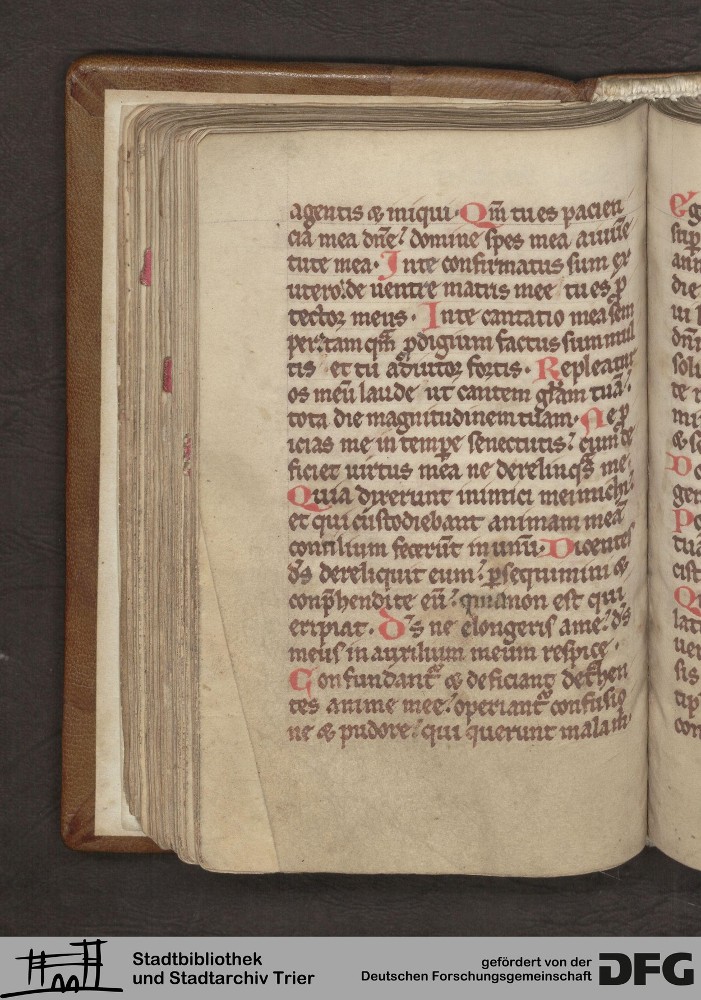 agentis & iniqui. Qm̄ tu es pacien
cia mea dn̄e: domine spes mea a iuuē
tute mea. In te confirmatus sum ex
utero: de uentre matris mee tu es ꝓ
tector meus. In te cantatio mea sem
per: tam qm̄ ꝓdigium factus sum mul
tis et tu adiutor fortis. Repleatur
os meū laude ut cantem gl̄am tuā:
tota die magnitudinem tuam. Ne ꝓ
icias me in tempe senectutis: cum de
ficiet uirtus mea ne derelinqs me
Quia dixerunt inimici mei michi:
et qui custodiebant animam meā
consilium fecerūt in unū. Dicentes
ds dereliquit eum: ꝑsequimini &
conp̄hendite eū: quia non est qui
eripiat. Ds ne elongeris a me: ds
meus in auxilium meum respice.
Confundant̃ & deficiant detrhen
tes anime mee: operiant̃ confusio
ne & pudore: qui querunt mala m
Stadtbibliothek
und Stadtarchiv Trier
gefördert von der
Deutschen Forschungsgemeinschaft
DFG